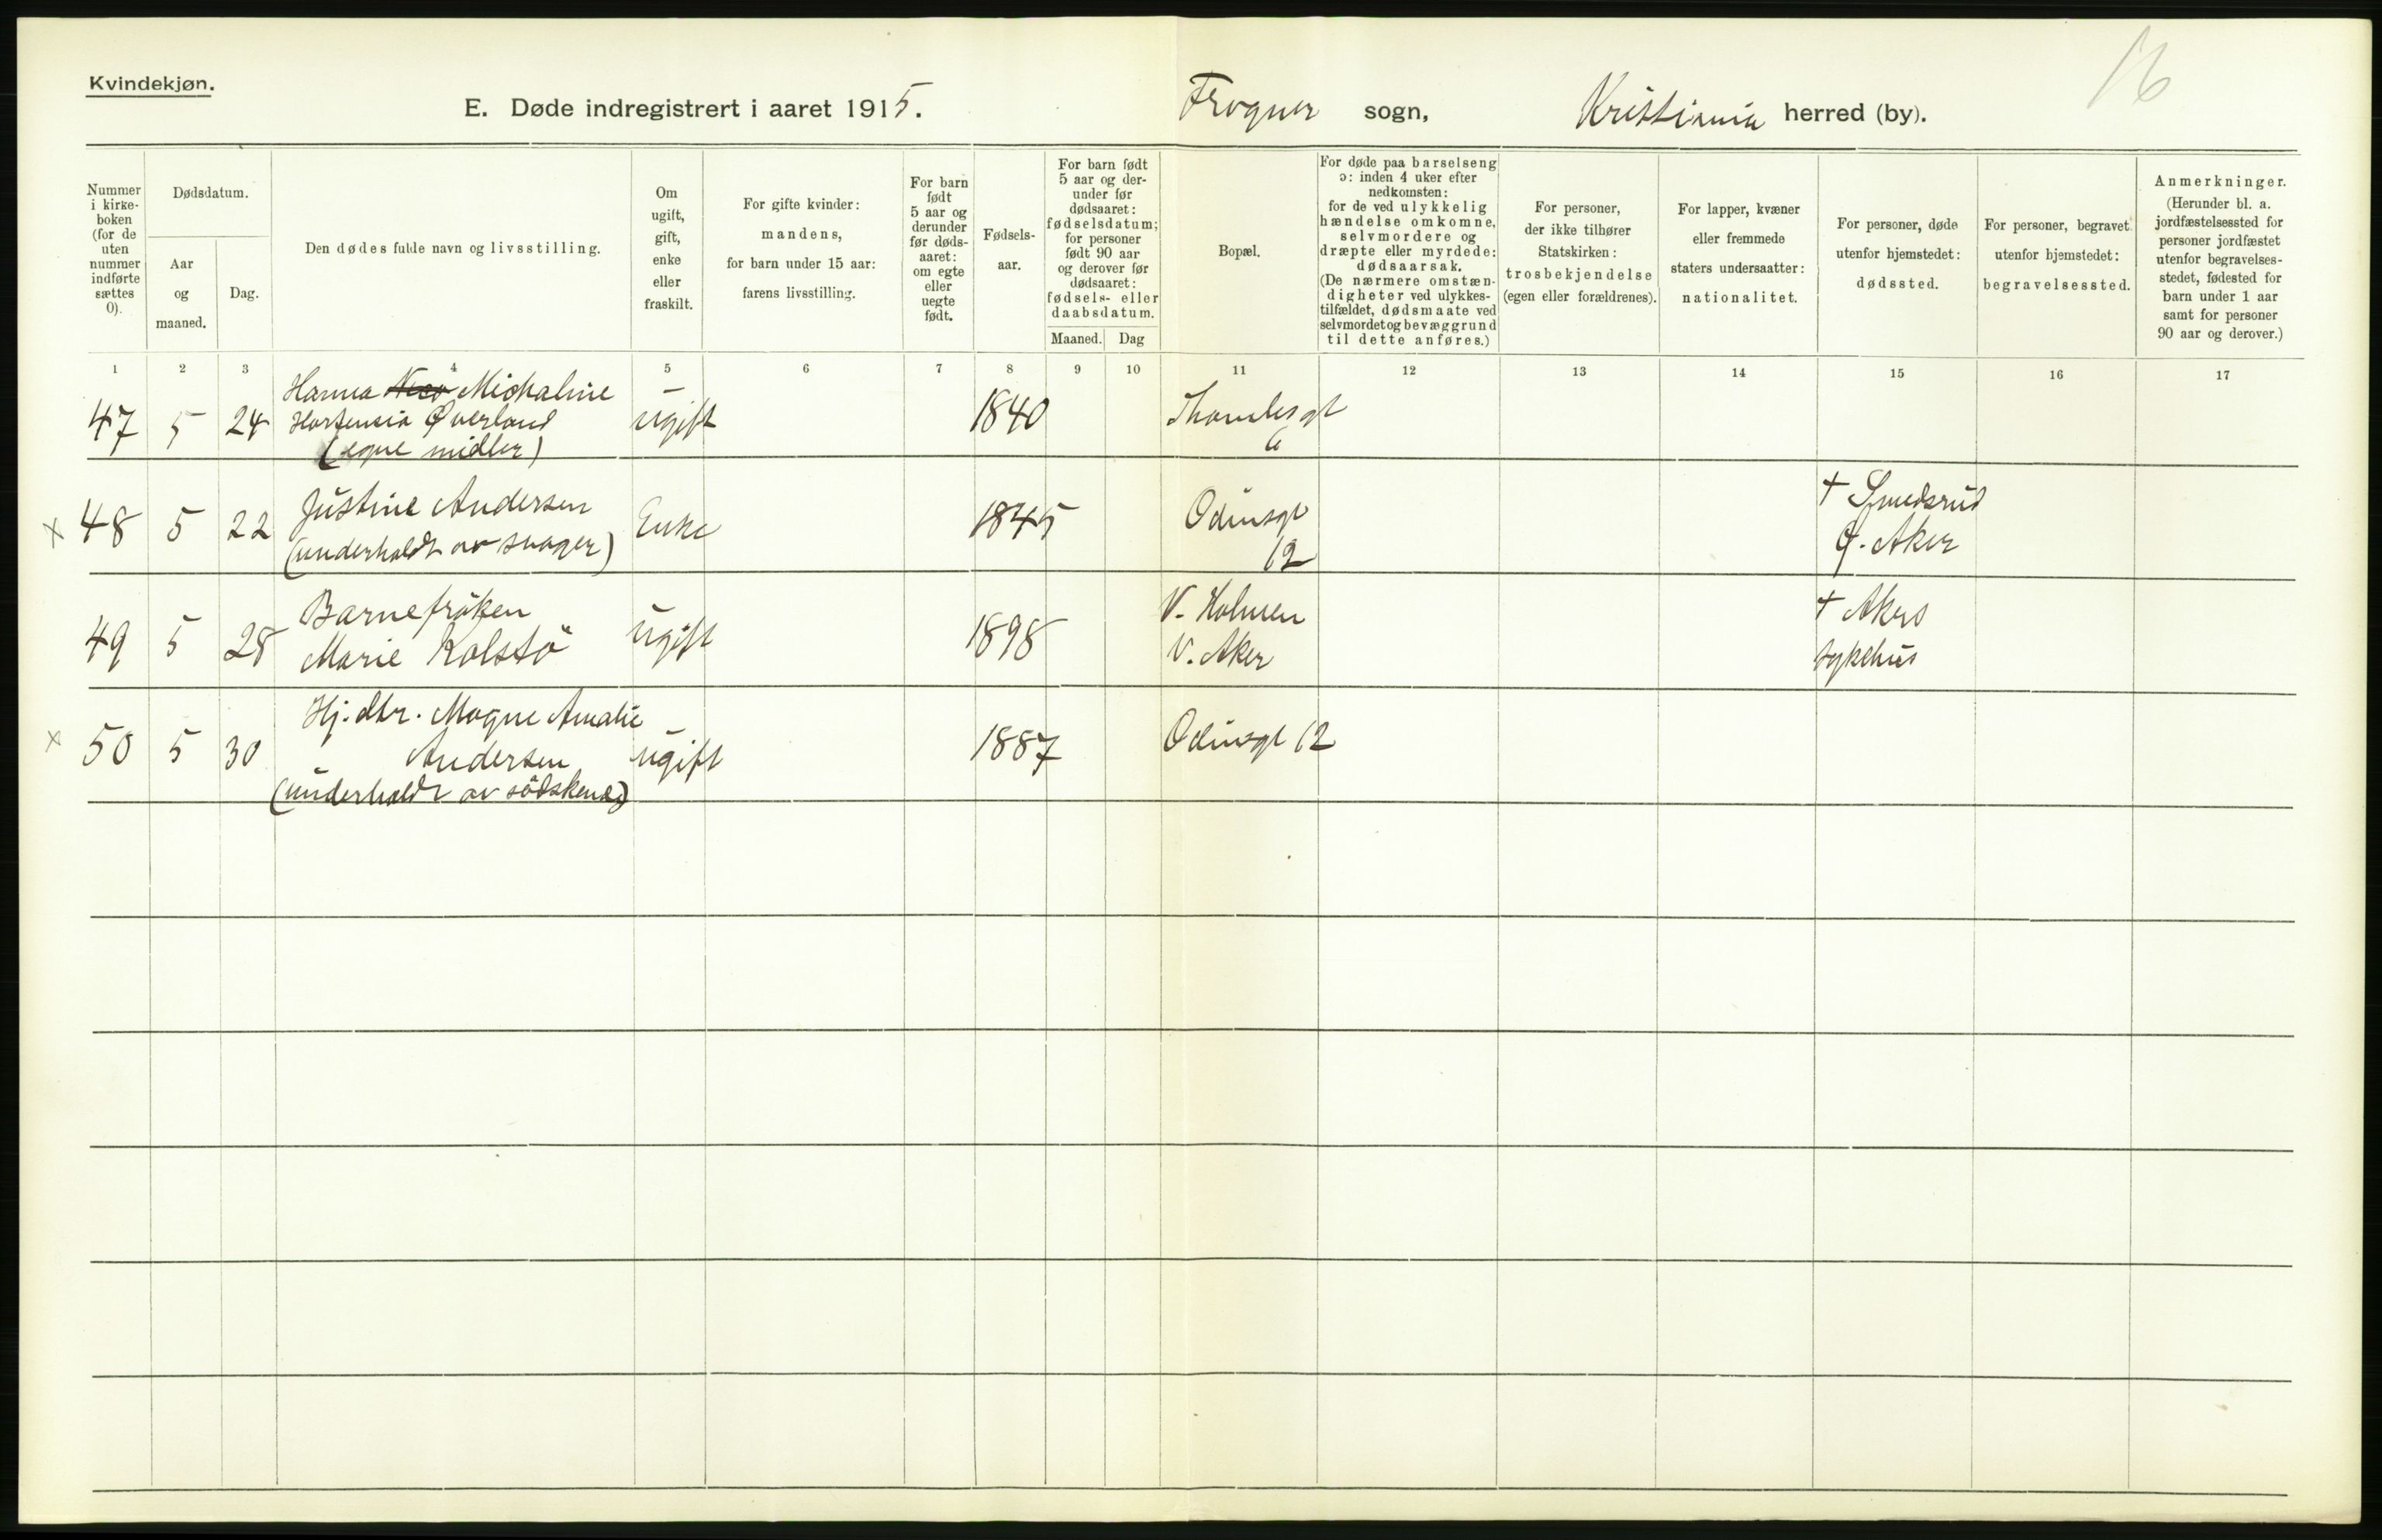 Kvindekjøn.
E. Døde indregistrert i aaret 1915. Frogner sogn, Kristiania herred (by).
16
Nummer i kirke- boken (for de uten nummer indførte sættes 0).
Dødsdatum.
Aar og maaned.
Dag.
Den dødes fulde navn og livsstilling.
Om ugift, gift, enke eller fraskilt.
For gifte kvinder: mandens, for barn under 15 aar: farens livsstilling.
For barn født 5 aar og derunder før døds- aaret: om egte eller uegte født.
Fødsels- aar.
For barn født 5 aar og der- under før dødsaaret: fødselsdatum; for personer født 90 aar og derover før dødsaaret: fødsels- eller daabsdatum.
Maaned. Dag
Bopæl.
For døde paa barselseng ɔ: inden 4 uker efter nedkomsten: for de ved ulykkelig hændelse omkomne, selvmordere og dræpte eller myrdede: dødsaarsak. (De nærmere omstæn- digheter ved ulykkes- tilfældet, dødsmaate ved selvmordet og bevæggrund til dette anføres.)
For personer, der ikke tilhører Statskirken: trosbekjendelse (egen eller forældrenes).
For lapper, kvæner eller fremmede staters undersaatter: nationalitet.
For personer, døde utenfor hjemstedet: dødssted.
For personer, begravet utenfor hjemstedet: begravelsessted.
Anmerkninger. (Herunder bl. a. jordfæstelsessted for personer jordfæstet utenfor begravelses- stedet, fødested for barn under 1 aar samt for personer 90 aar og derover.)
1 2 3 4 5 6 7 8 9 10 11 12 13 14 15 16 17
Hanna Michaline
47 5 24 Hortensia Øverland ugift 1840 Thomles gt
(egne midler) 6
x 48 5 22 Justine Andersen Enke 1845 Odinsgt † Smedsrud
(underholdt av svoger) 12 Ø. Aker
Barnefröken V. Holmen † Akers
49 5 28 Marie Kolstö ugift 1898 V. Aker sykehus
Hj. dtr. Magne Amalie
x 50 5 30 Andersen ugift 1887 Odinsgt 12
(underholdt av södskende)